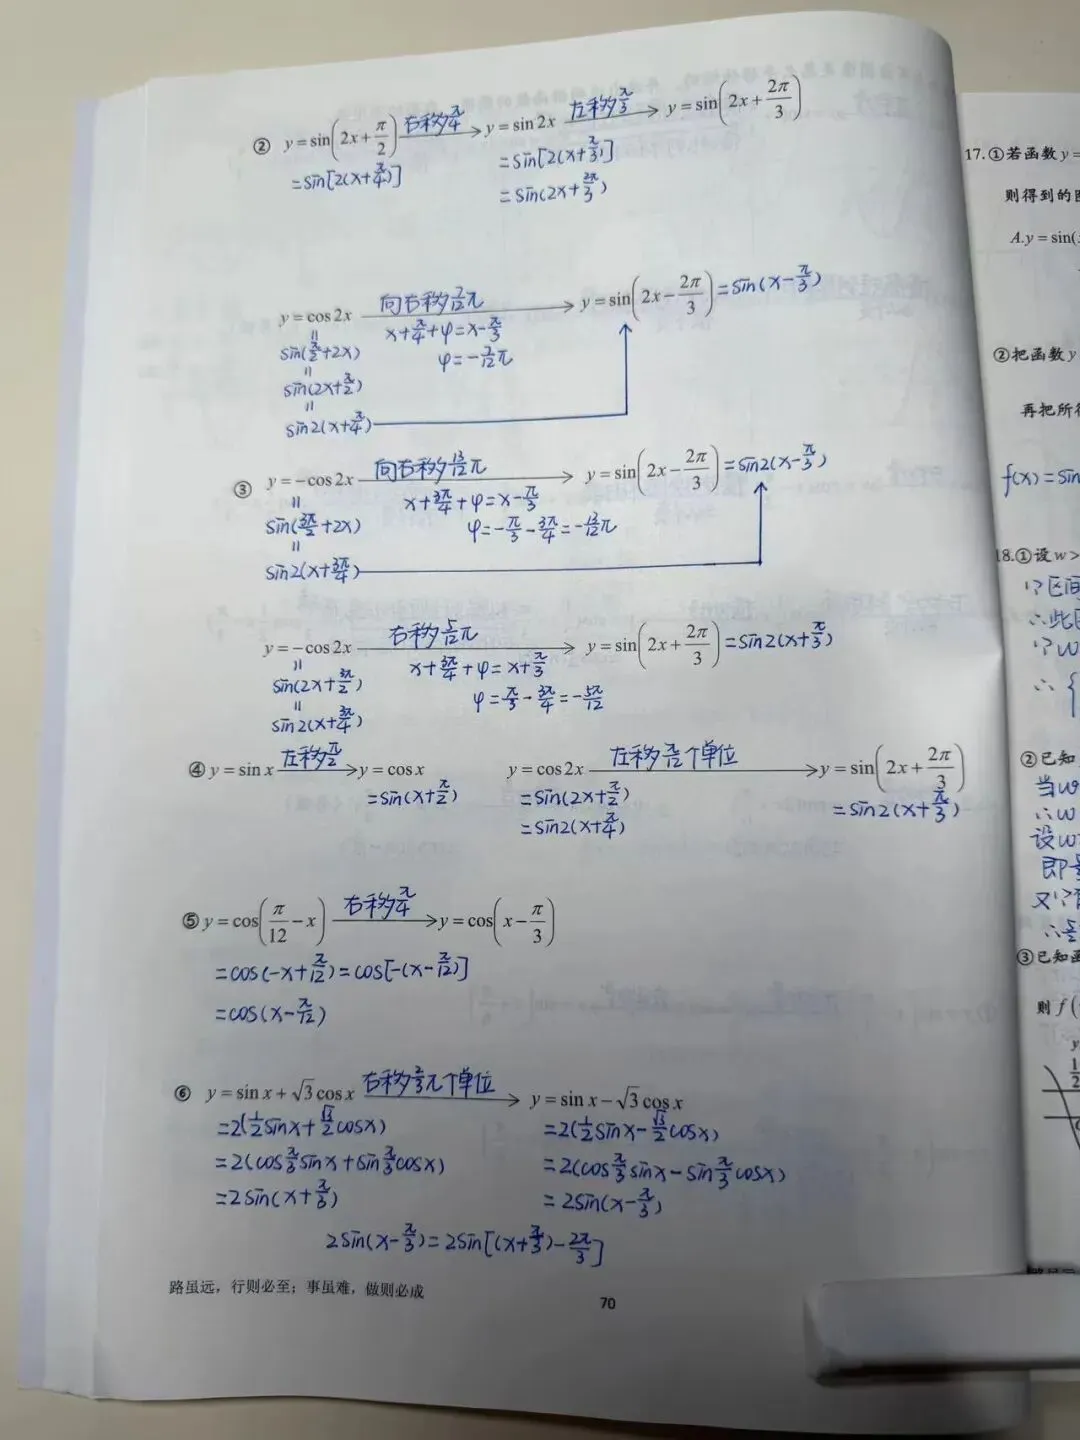 ② y=sin(2x+π/2) 右移π/4 → y=sin2x 左移π/3 → y=sin(2x+2π/3)
=sin[2(x+π/4)] =sin[2(x+π/3)]
=sin(2x+2π/3)
y=cos2x 向右移7/12π → y=sin(2x-2π/3)=sin(x-π/3)
x+π/4+φ=x-π/3
=sin(π/2+2x) φ=-7/12π
=sin(2x+π/2)
=sin2(x+π/4)
③ y=-cos2x 向右移13/12π → y=sin(2x-2π/3)=sin2(x-π/3)
x+3π/4+φ=x-π/3
=sin(3π/2+2x) φ=-π/3-3π/4=-13/12π
=sin2(x+3π/4)
y=-cos2x 右移5/12π → y=sin(2x+2π/3)=sin2(x+π/3)
x+3π/4+φ=x+π/3
=sin(2x+3π/2) φ=π/3-3π/4=-5π/12
=sin2(x+3π/4)
④ y=sinx 左移π/2 → y=cosx y=cos2x 左移π/12个单位 → y=sin(2x+2π/3)
=sin(x+π/2) =sin(2x+π/2) =sin2(x+π/3)
=sin2(x+π/4)
⑤ y=cos(π/12-x) 右移π/4 → y=cos(x-π/3)
=cos(-x+π/12)=cos[-(x-π/12)]
=cos(x-π/12)
⑥ y=sinx+√3cosx 右移2/3π个单位 → y=sinx-√3cosx
=2(1/2sinx+√3/2cosx) =2(1/2sinx-√3/2cosx)
=2(cosπ/3sinx+sinπ/3cosx) =2(cosπ/3sinx-sinπ/3cosx)
=2sin(x+π/3) =2sin(x-π/3)
2sin(x-π/3)=2sin[(x+π/3)-2π/3]
路虽远，行则必至；事虽难，做则必成
70
17.①若函数y=
则得到的
A.y=sin(
②把函数y
再把所
f(x)=sin
18.①设w>
∵区间
∴此
∵w
∴{
②已知
当w
∴w
设w
即
又∵
∴
③已知
则f(
y
1/2